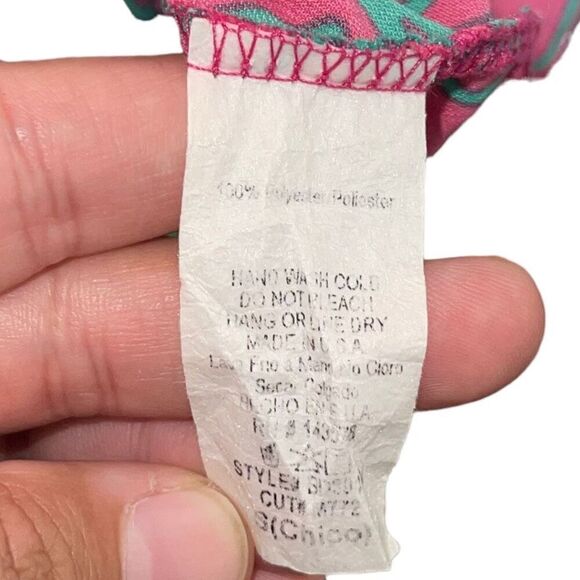 100% Polyester Poliester
HAND WASH COLD
DO NOT BLEACH
HANG OR LINE DRY
MADE IN U.S.A
Lave Frio a Mano No Cloro
Secar Colgado
HECHO EN E.U.A.
RN #
STYLE#
CUT#
S(Chico)